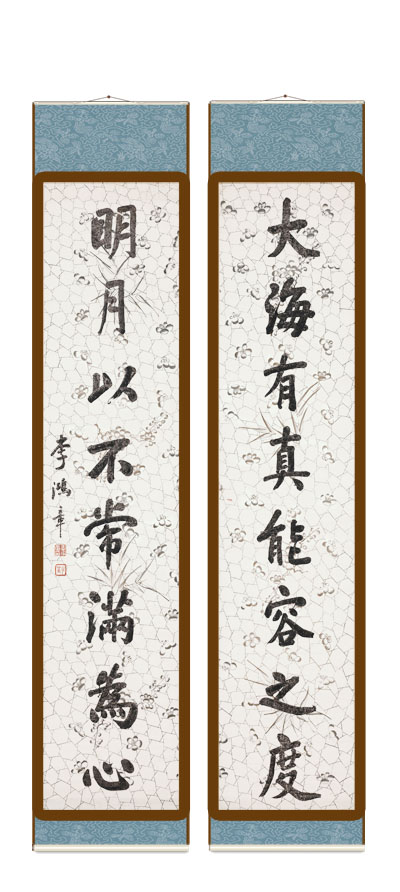 大海有真能容之度
明月以不常滿為心
李鴻章